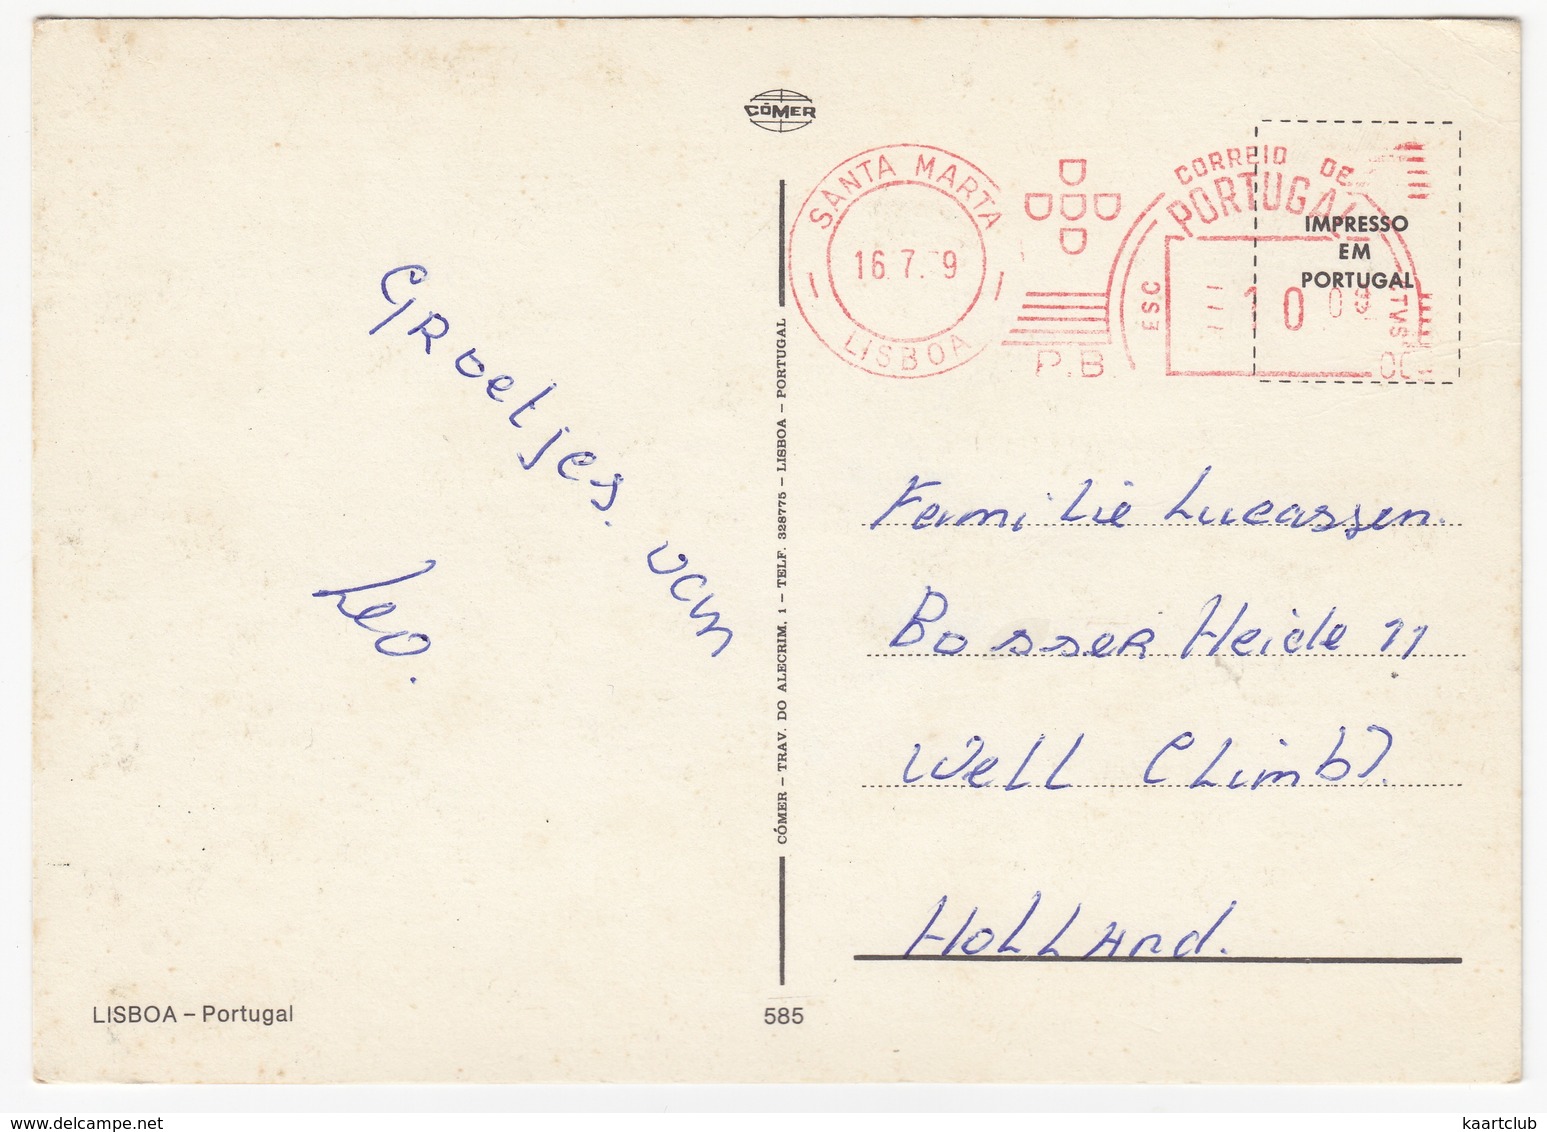 CÓMER
SANTA MARTA
LISBOA
P.B.
CORREIO DE
PORTUGAL
ESC
CTVS
IMPRESSO
EM
PORTUGAL
GRoetjes. van
Leo.
CÓMER – TRAV. DO ALECRIM, 1 – TELF. 328775 – LISBOA – PORTUGAL
Familie Lucassen.
BosseR Heide 11
Well (Limb).
HoLLAnd.
LISBOA – Portugal
585
www.delcampe.net
kaartclub